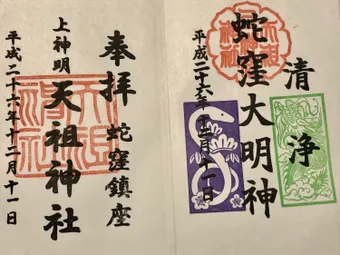 清浄
蛇窪大明神
平成二十六年十二月十一日
奉拝 蛇窪鎮座
上神明
天祖神社
平成二十六年十二月十一日